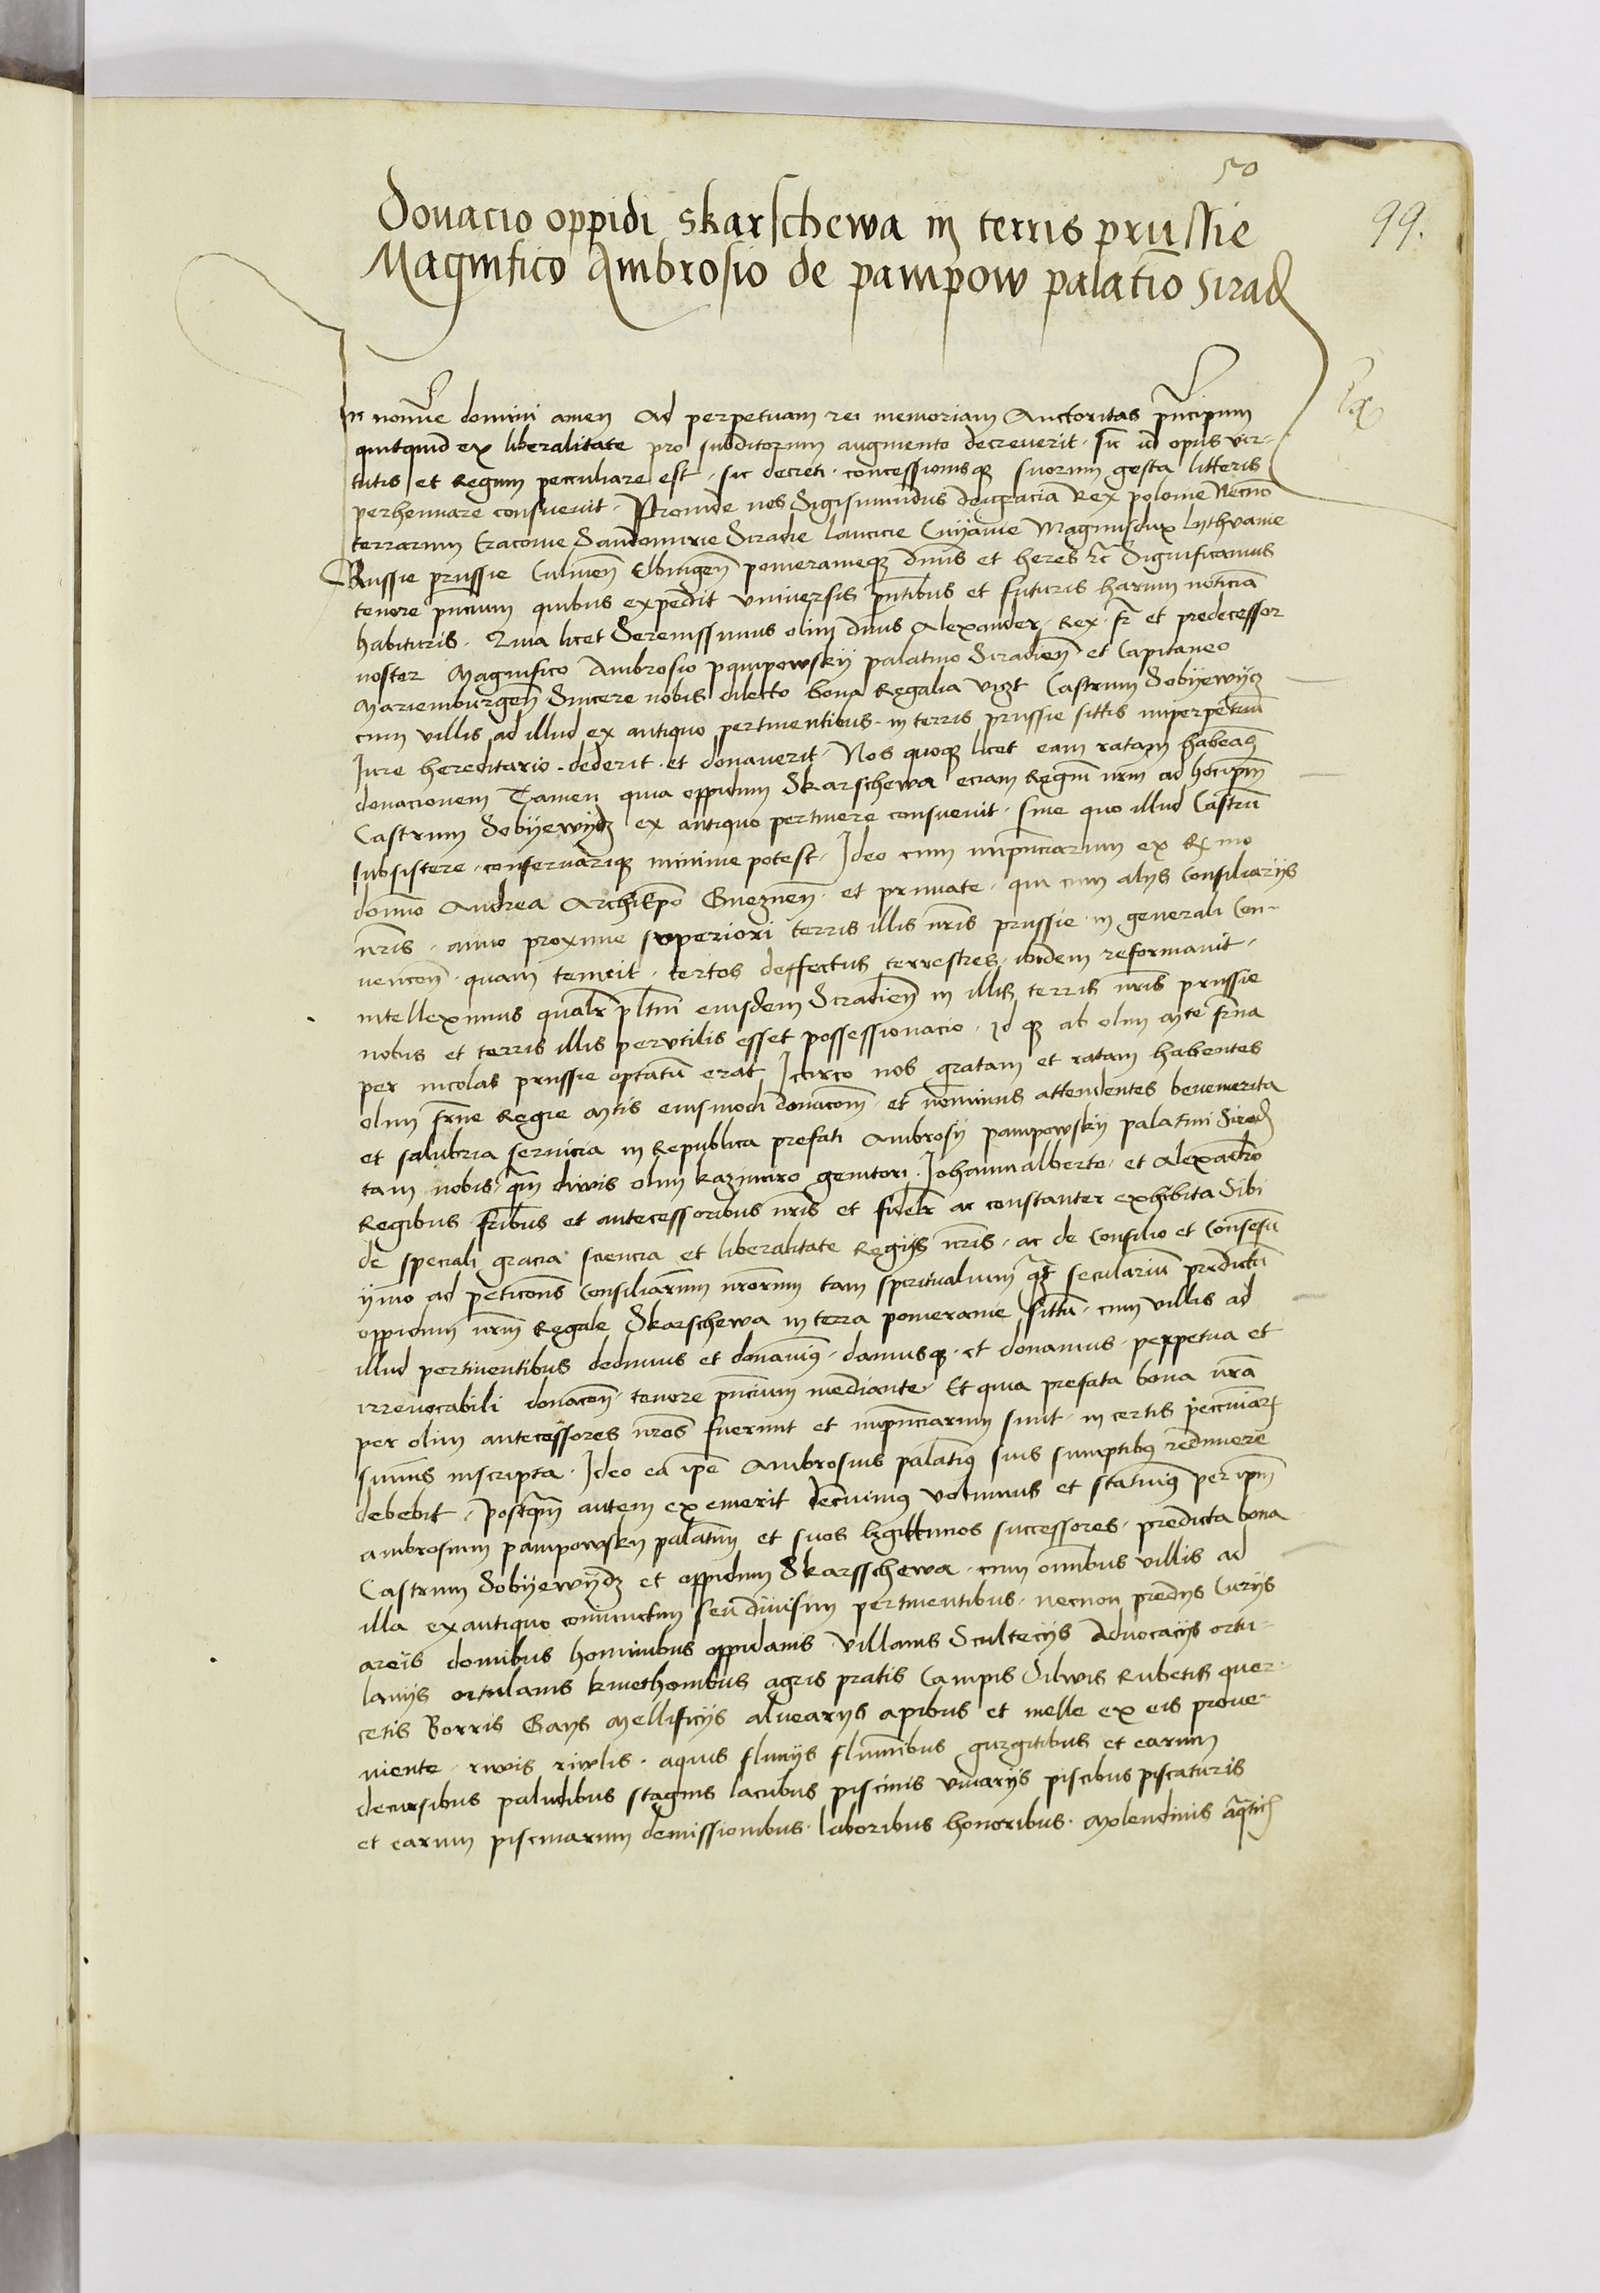 50
99.
Donacio oppidi Skarschewa in terris prussie
Magnifico Ambrosio de pampow palatino Sirad
In nomine domini amen Ad perpetuam rei memoriam Auctoritas principum
quitquid ex liberalitate pro subditorum augmento decreverit sic opus vir-
tutis et Regum pecculiare est sic decreti concessionisque suorum gesta litteris
perhennare consuevit Proinde nos Sigismundus dei gracia Rex polonie Necno
terrarum Cracovie Sandomirie Siradie lancicie Cuyavie Magnusdux lythvanie
Russie prussie Culmen Elbingen pomeranieque dnus et heres etc Significamus
tenore pncium quibus expedit universis pntibus et futuris harum noticia
habituris Qua licet Serenissimus olim dnus Alexander Rex fr et predecessor
noster Magnifico Ambrosio pampowskij palatino Siradien et Capitaneo
Mariemburgen Sincere nobis dilecto bona Regalia vizt Castrum Sobyewydz
cum villis ad illud ex antiquo pertinentibus in terris prussie sittis imperpetuu
Iure hereditario dederit et donaverit Nos quoque licet eam ratam habeas
donacionem Tamen quia oppidum Skarschewa eciam Regiu nrm ad hocipm
Castrum Sobyewydz ex antiquo pertinere consuevit sine quo illud Castru
subsistere conservarique minime potest Ideo cum impnciarum ex Rx mo
domino Andrea Archiepo Gneznen et primate qui cum alijs Consiliarijs
nris anno proxime superiori terris illis nris prussie in generali Con-
vencon quam tenuit certos deffectus terrestres ibidem reformavit
intelleximus qualr pltni eiusdem Siradien in illis terris nris prussie
nobis et terris illis perutilis esset possessionacio Id que ab olim Mte frna
per incolas prussie optatum erat Icirco nos gratam et ratam habentes
olim frne Regie Mtis eiusmodi donacom et nominus attendentes benemerita
et salubria servicia in Republica prefati Ambrosij pampowskij palatini Sirad
tam nobis qm divis olim Kazimiro genitori Iohannialberto et Alexadro
Regibus fribus et antecessoribus nris et fidelr ac constanter exhibita Sibi
de speciali gracia sciencia et liberalitate Regijs nris ac de Consilio et Consesu
ymo ad peticons Consiliarium nrorum tam spiritualium qz seculariu predictu
oppidum nrm Regale Skarschewa in terra pomeranie sittu cum villis ad
illud pertinentibus dedimus et donavimus damusque et donamus perpetua et
irrevocabili donacon tenore pncium mediante Et quia prefata bona nra
per olim antecessores nros fuerunt et impnciarum sunt in certis peccuniarz
sumis inscripta Ideo ea ipe Ambrosius palatinus suis sumptibus redimere
debebit Postqm autem exemerit decrevimus volumus et statuimus per ipm
ambrosium pampowskij palatinu et suos legittimos successores predicta bona
Castrum Sobyewydz et oppidum Skarsschewa cum omnibus villis ad
illa exantiquo coniunctim seu divisim pertinentibus necnon predijs Curijs
areis domibus hominibus oppidanis villanis Scultecijs Advocacijs ortu-
lanijs ortulanis kmethonibus agris pratis Campis Silvis Rubetis quer-
cetis Borris Gays Mellificijs alvearijs apibus et melle ex eis prove-
niente rivis rivlis aquis fluvijs fluminibus gurgitibus et earum
decursibus paludibus stagnis lacubus piscinis vivarijs piscibus piscaturis
et earum piscinarum demissionibus laboribus honoribus Molendinis aqticis